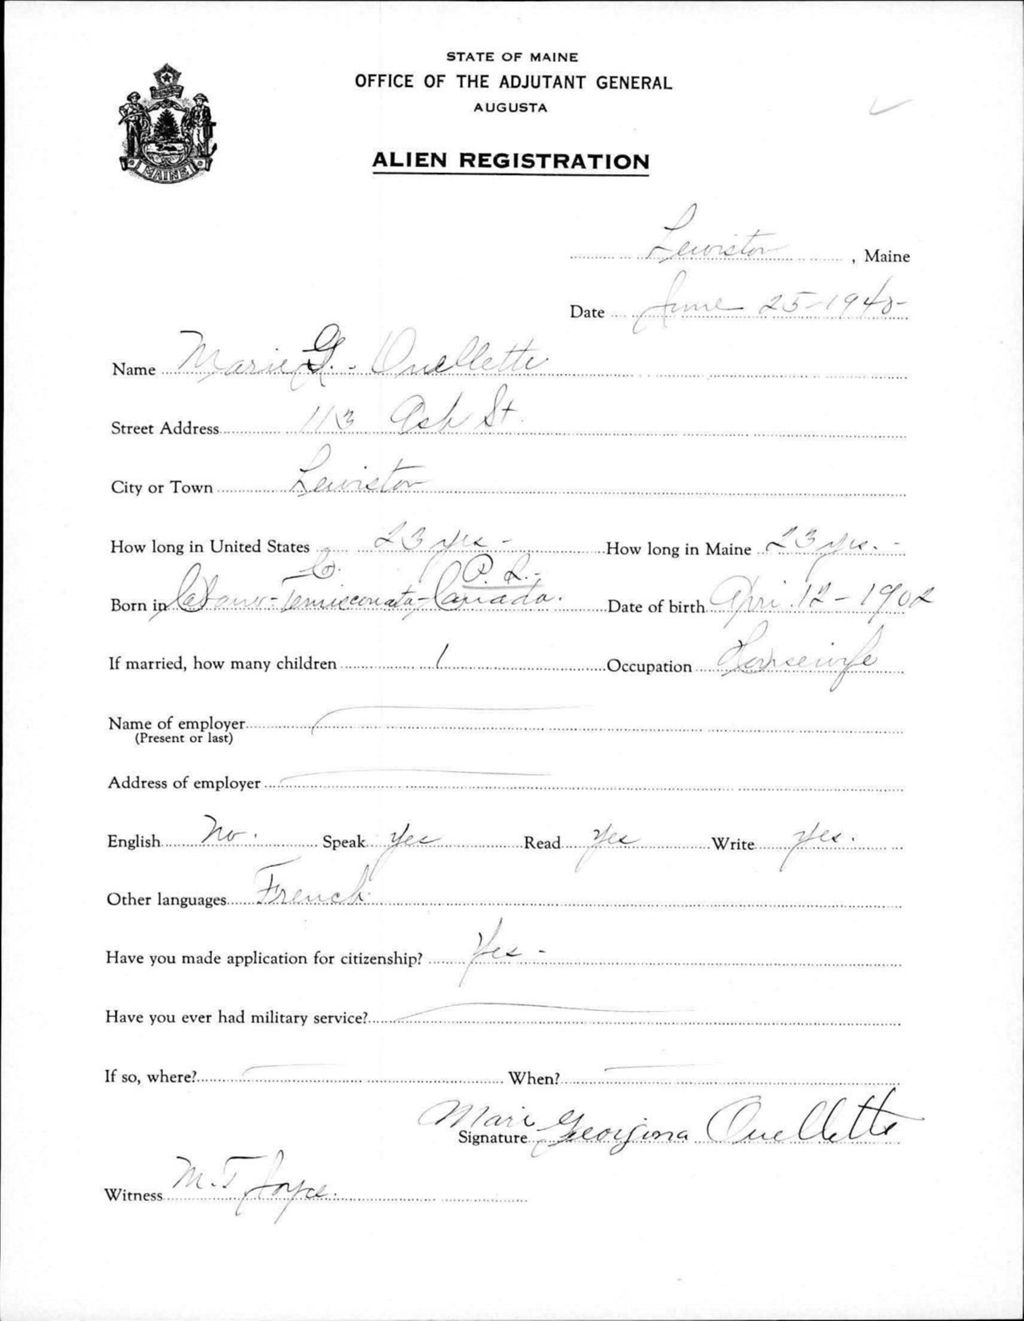 STATE OF MAINE
OFFICE OF THE ADJUTANT GENERAL
AUGUSTA
ALIEN REGISTRATION
MAINE
Lewiston, Maine
Date June 25-1940-
Name Marie G. - Ouellette
Street Address 113 Ash St.
City or Town Lewiston
How long in United States 23 yrs - How long in Maine 23 yrs. -
Born in Cabano-Temiscouata-Canada. P.Q.- Date of birth April 12-1902
If married, how many children 1 Occupation Housewife
Name of employer
(Present or last)
Address of employer
English No. Speak Yes Read Yes Write Yes.
Other languages French
Have you made application for citizenship? Yes -
Have you ever had military service?
If so, where? When?
Signature Mari Georgina Ouellette
Witness M. T. Joyce.